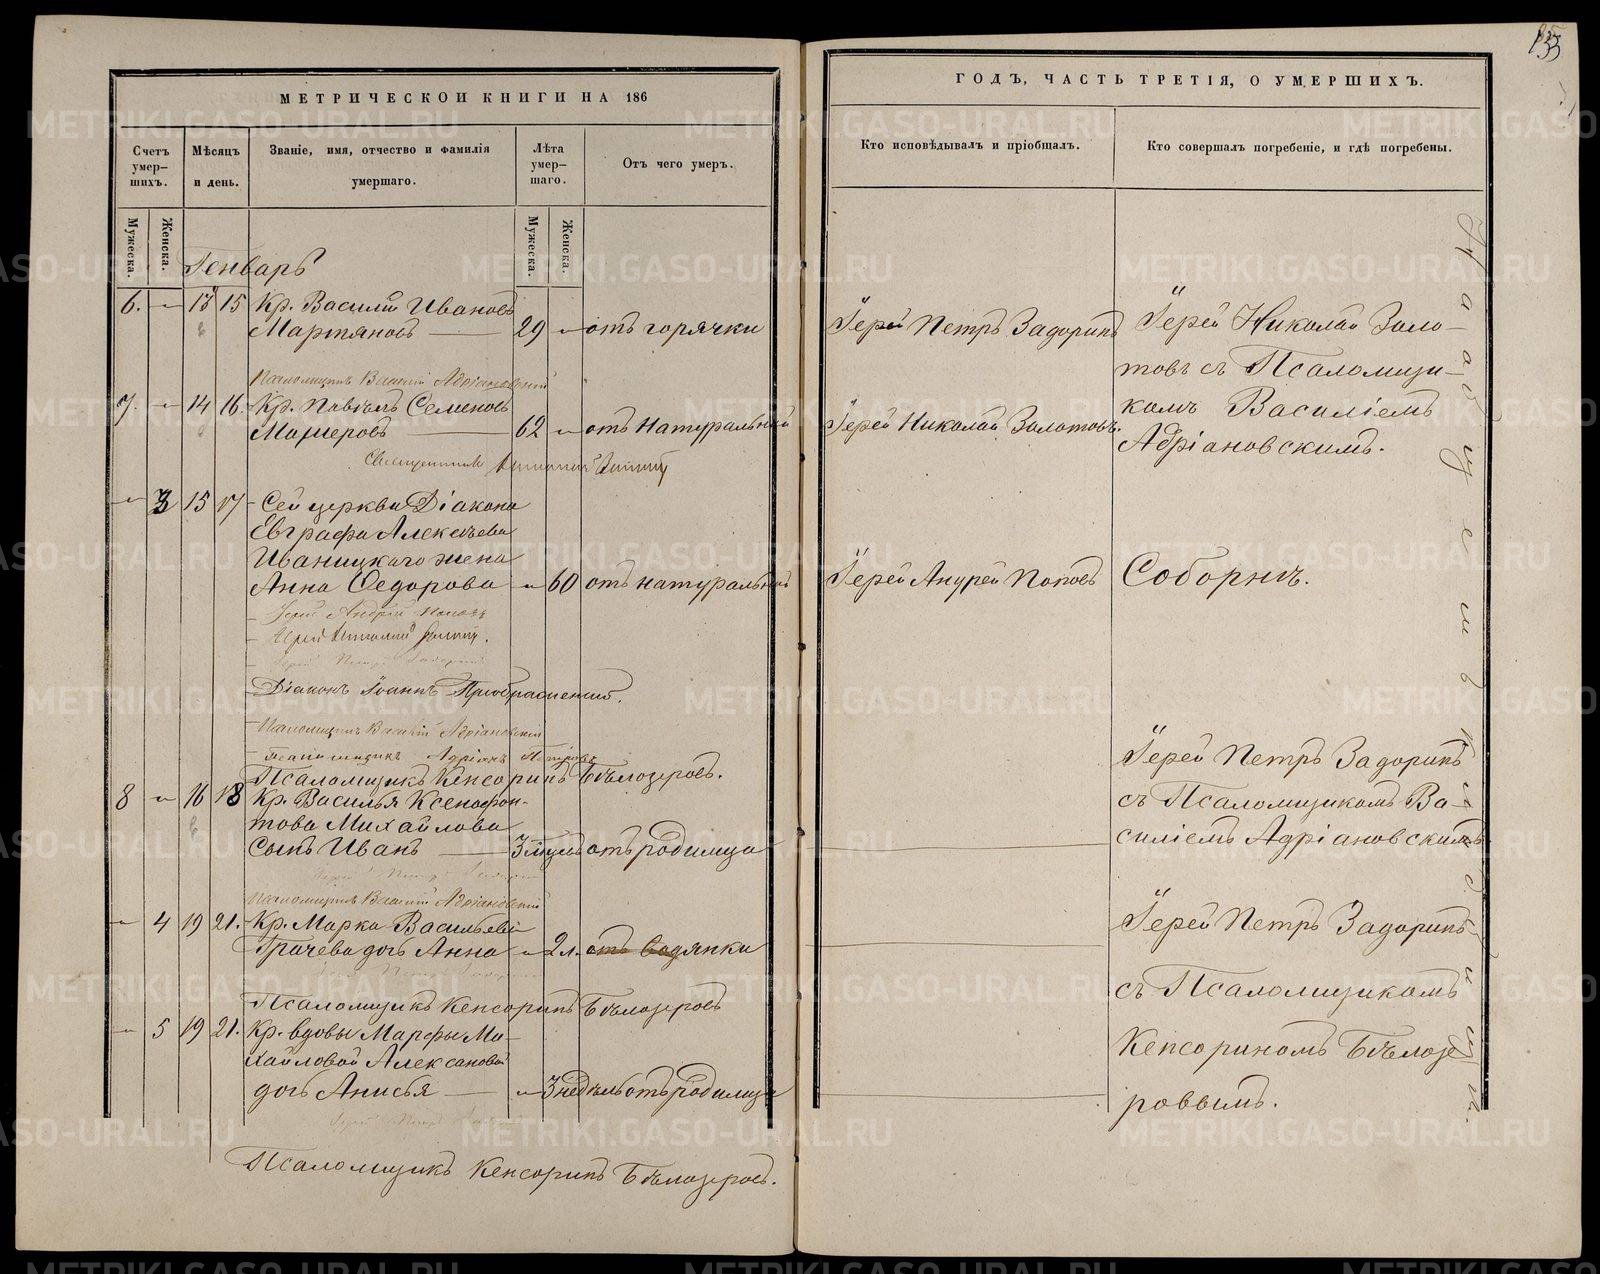 МЕТРИЧЕСКОЙ КНИГИ НА 186
Счетъ умер-шихъ.
Мѣсяцъ и день.
Званіе, имя, отчество и фамилія умершаго.
Лѣта умер-шаго.
Отъ чего умеръ.
Мужеска.
Женска.
Мужеска.
Женска.
Генварь
6. 13 15 Кр. Василій Ивановъ
Мартяновъ 29 отъ горячки
Псаломщикъ Василій Адріановскій
7. 14 16. Кр. Павелъ Семеновъ
62 отъ натуральной
Священникъ
3 15 17 Сей церкви Діакона
Евграфа Алексѣева
Иваницкаго жена
Анна Ѳедорова 60 отъ натуральной
Іерей Андрей Поповъ
Іерей
Іерей Петръ Задоринъ
Діаконъ Іоаннъ Преображенскій.
Псаломщикъ Василій Адріановскій
Псаломщикъ Адріанъ
Псаломщикъ Кенсоринъ Бѣлозеровъ.
8 16 18 Кр. Василья Ксенофон-
това Михайлова
сынъ Иванъ 3 мѣсяцъ отъ родимца
Іерей Петръ Задоринъ
Псаломщикъ Василій Адріановскій
4 19 21. Кр. Марка Васильева
Грачева дочь Анна 2 л. отъ водянки
Іерей Петръ Задоринъ
Псаломщикъ Кенсоринъ Бѣлозеровъ
5 19 21. Кр. вдовы Марфы Ми-
хайловой Алексановой
дочь Анисья 3 недѣль отъ родимца
Іерей Петръ Задоринъ
Псаломщикъ Кенсоринъ Бѣлозеровъ.
ГОДЪ, ЧАСТЬ ТРЕТІЯ, О УМЕРШИХЪ.
Кто исповѣдывалъ и пріобщалъ.
Кто совершалъ погребеніе, и гдѣ погребены.
Іерей Петръ Задоринъ
Іерей Николай Золо-
товъ съ Псаломщи-
комъ Василіемъ
Адріановскимъ.
Іерей Николай Золотовъ.
Іерей Андрей Поповъ
Соборнѣ.
Іерей Петръ Задоринъ
съ Псаломщикомъ Ва-
силіемъ Адріановскимъ
Іерей Петръ Задоринъ
съ Псаломщикомъ
Кенсориномъ Бѣлозе
ровымъ.
METRIKI.GASO-URAL.RU